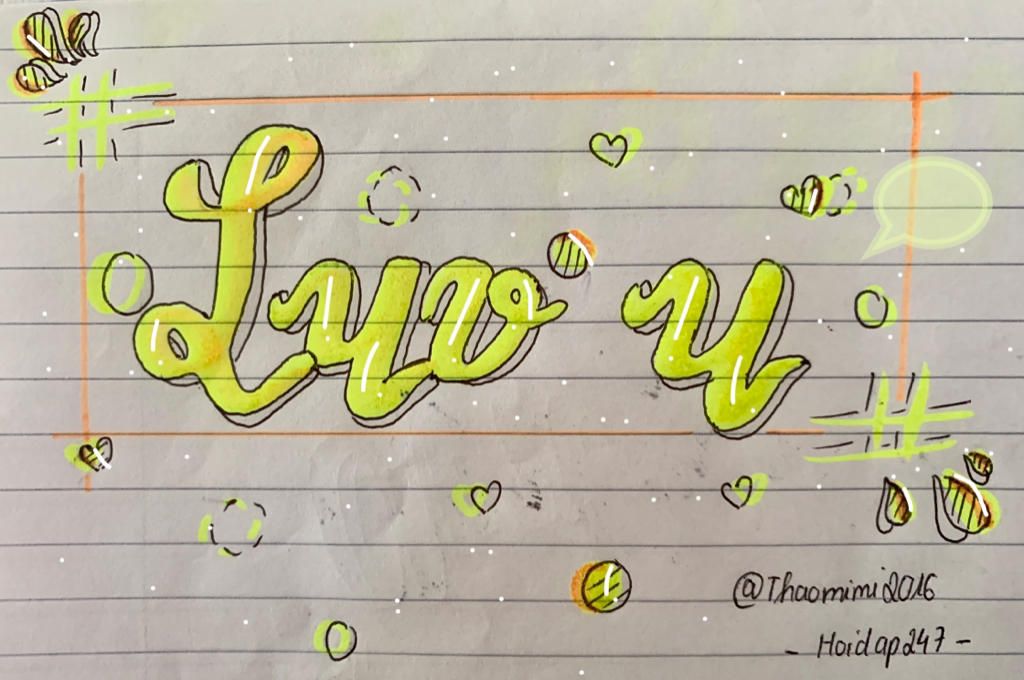 Luv u
@Thaomimi2016
- Hoidap247 -